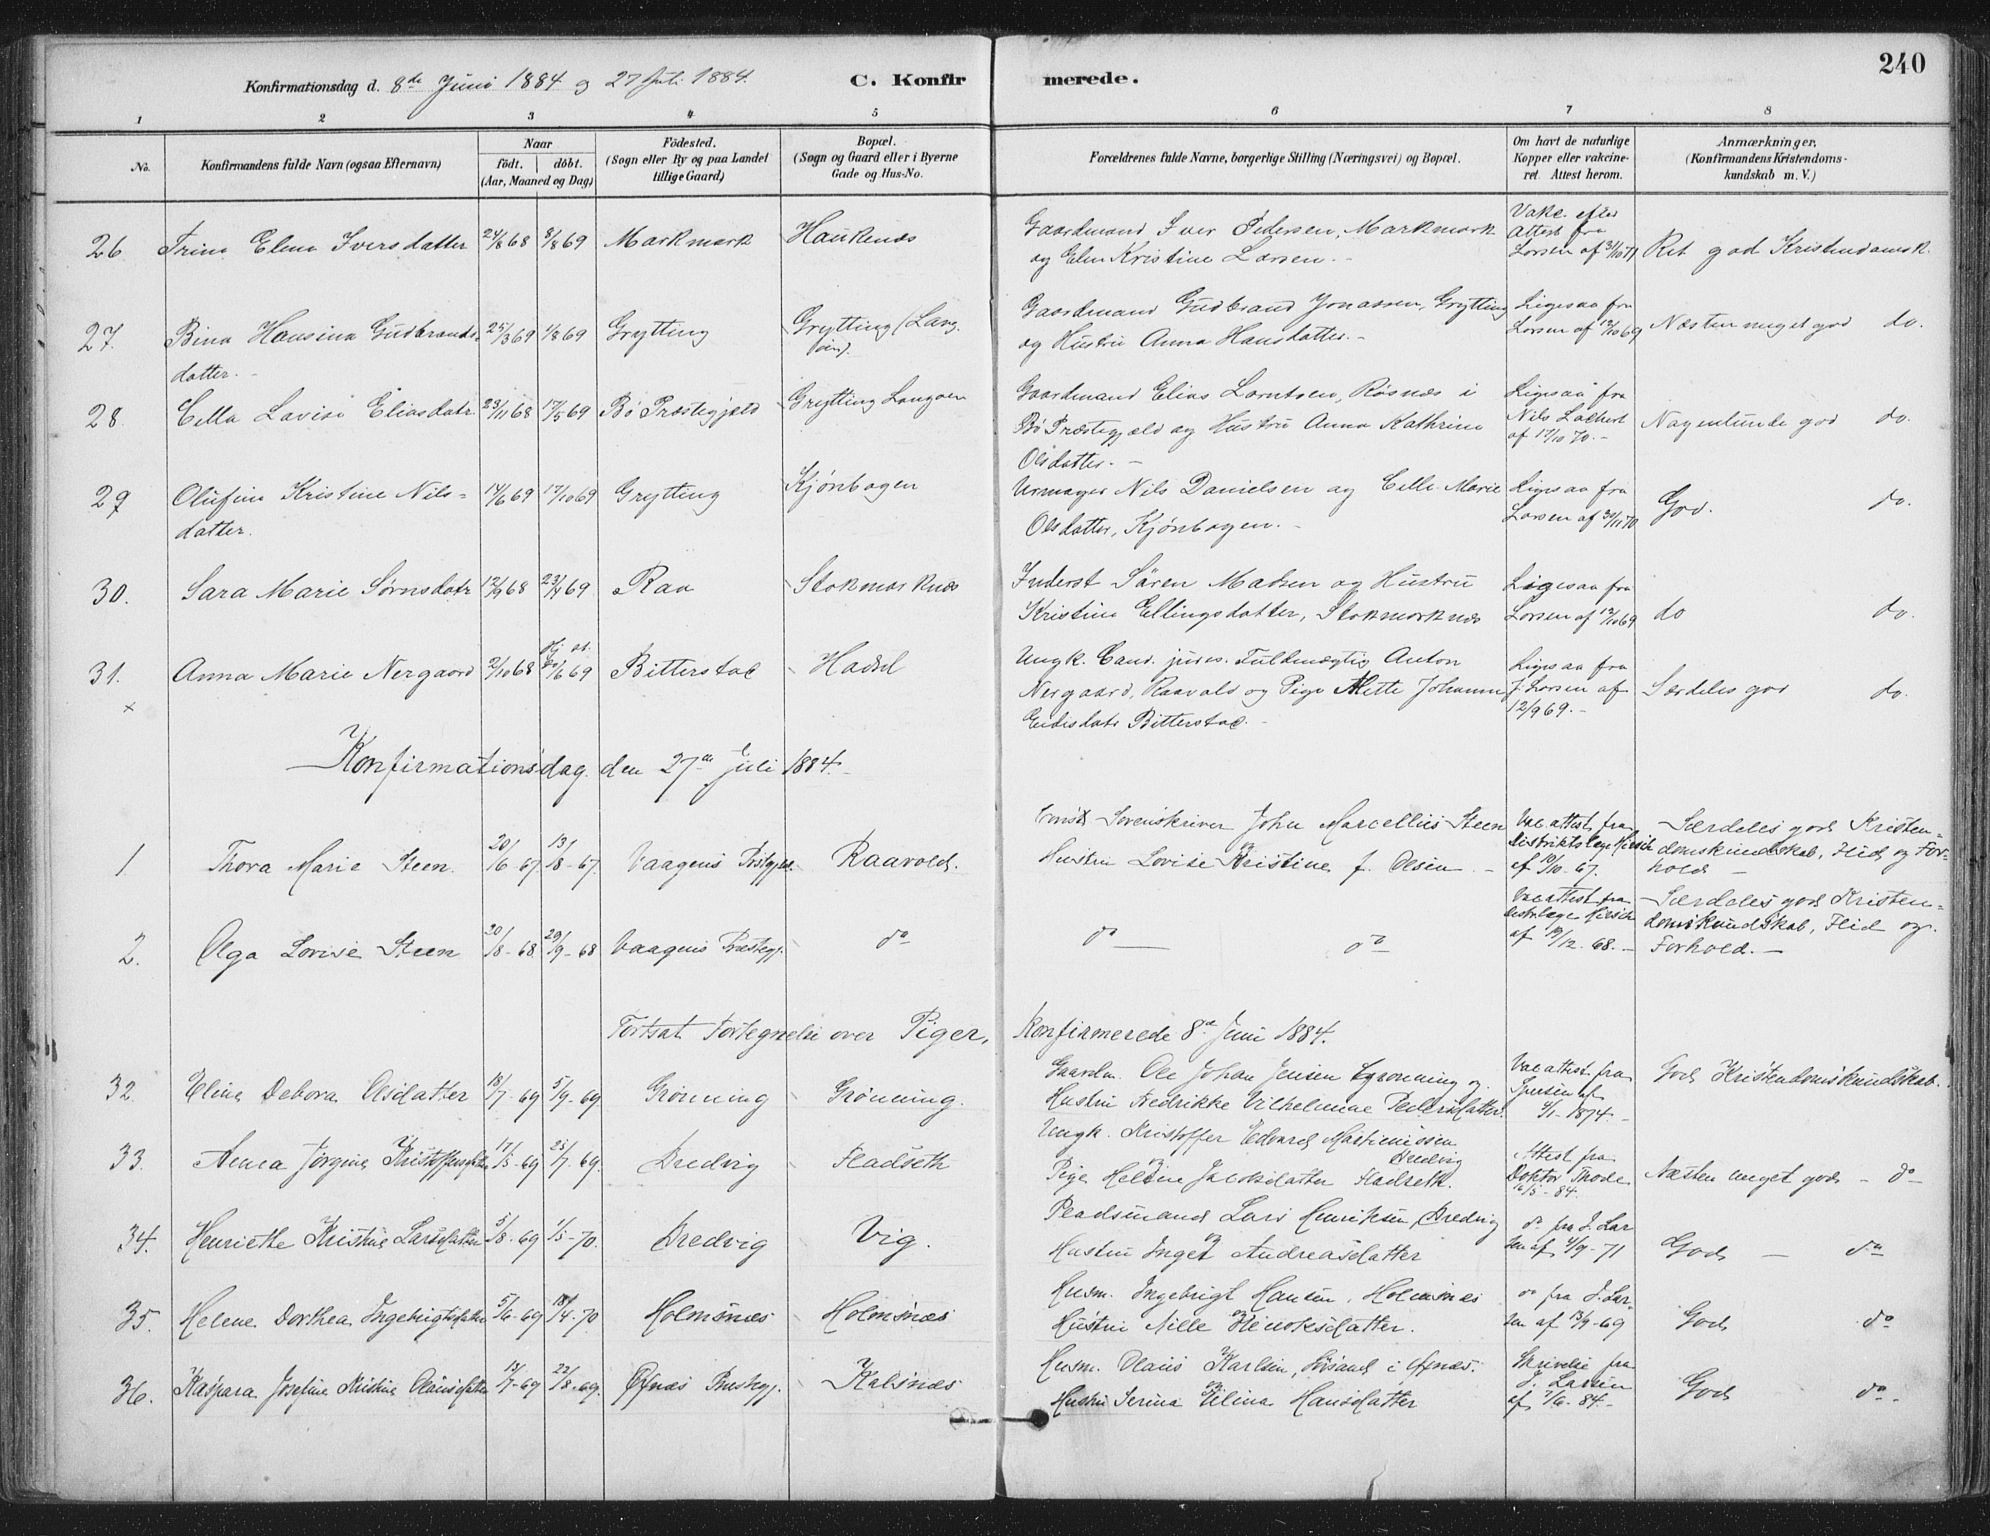 240
Konfirmationsdag d. 8de Juni 1884 og 27 Juli 1884.
C. Konfirmerede.
1 2 3 4 5 6 7 8
No.
Konfirmandens fulde Navn (ogsaa Efternavn)
Naar
födt. döbt.
(Aar, Maaned og Dag)
Födested.
(Sogn eller By og paa Landet
tillige Gaard)
Bopæl.
(Sogn og Gaard eller i Byerne
Gade og Hus-No.
Forældrenes fulde Navne, borgerlige Stilling (Næringsvei) og Bopæl.
Om havt de naturlige
Kopper eller vakcine-
ret. Attest herom.
Anmærkninger,
(Konfirmandens Kristendoms-
kundskab m. V.)
26 Trina Elena Iversdatter 24/8 68 8/8 69 Markmark Haukenæs
Gaardmand Iver Pedersen, Markmark
og Elen Kristine Larsen. -
Vakc. efter
Attest fra
Larsen af 31/10 71
Ret god Kristendomsk.
27. Bina Hansina Gudbrands-
datter. - 25/3 69 1/8 69 Grytting Grytting (Lang-
öen).
Gaardmand Gudbrand Jonassen, Grytting
og Hustru Anna Hansdatter. -
Ligesaa fra
Larsen af 12/10 69
Næsten meget god do.
28. Cella Lavise Eliasdatr 23/11 68 17/5 69 Bö Præstegjeld Grytting Langöen
Gaardmand Elias Lorntsen, Røsnæs i
Bö Præstegjæld og Hustru Anna Kathrine
Olsdatter. -
Ligesaa fra
Nils
af 17/10 70. -
Nogenlunde god do.
29 Olufine Kristine Nils-
datter. 14/6 69 17/10 69 Grytting Kjönbogen
Urmager Nils Danielsen og Celle Marie
Olsdatter, Kjönbogen. -
Ligesaa fra
Larsen af 30/11 70
God. do.
30. Sara Marie Sørnsdatr 12/9 68 23/4 69 Raa Stokmarknæs
Inderst Sören Madsen og Hustru
Kristine Ellingsdatter, Stokmarknæs
Ligesaa fra
Larsen af 12/10 69
do do.
31. Anna Marie Nergaard 2/10 68 20/6 69 Bitterstad Hadsel
x
Ungk. Cand. jures. Fuldmægtig Anton
Nergaard, Raavold og Pige Mette Johanna
Bitterstad. -
Ligesaa fra
J. Larsen af
12/9 69. -
Særdeles god do.
Konfirmationsdag den 27de Juli 1884. -
1 Thora Marie Steen. 20/6-67 13/8-67 Vaagens Raavold.
Sorenskriver John Marcellius Steen
og
Hustru Lovise Kristine f. Olsen. -
Vac attest fra
af 10/10. 67.
Særdeles god Kristen-
domskundskab, Flid og For-
hold -
2. Olga Lovise Steen 30/8-68 29/9-68 Vaagens Præstegj. do
do - do
Vac attest fra
af 19/12. 68. -
Særdeles god Kristen-
domskundskab, Flid og
Forhold. -
Fortsat Fortegnelse over Piger, Konfirmerede 8de Juni 1884.
32. Eline Debora Olsdatter 18/7-69 5/9-69 Grönning Grönning.
Gaardm. Ole Johan Jensen Grönning og
Hustru Fredrikke Vilhelmine Pedersdatter.
Vac attest fra
4/1-1874 -
God Kristendomskundskab.
33. Anna Jörgine Kristoffersdatter 17/5-69 25/7-69. Dredvig Fladseth
Ungk. Kristoffer Edvard Martinussen
Dredvig
og
Pige Helene Jacobsdatter Fladseth.
Attest fra
Doktor Thode
16/5-84.
Næsten meget god - do
34. Henriette Kristine Larsdatter 5/8-69 1/5-70. Dredvig Vig.
Pladsmand Lars Henriksen, Dredvig
og
Hustru Inger Andreasdatter
do fra J. Lar
sen af 4/9-71
God - do
35. Helene Dorthea Ingebrigtsdatter 5/6-69 18/4-70 Holmsnæs Holmsnæs
Husm. Ingebrigt Hansen, Holmsnæs
og
Hustru Nille Henoksdatter.
do fra J. Lar-
sen af 13/9-69
God do
36. Kaspara Josefine Kristine Olausdatter 12/7-69 22/8-69. Öxnæs Præstegj. Kalsnæs
Husm. Olaus Karlsen, i Öxnæs.
og
Hustru Serina Elina Hansdatter
Skrivelse fra
J. Larsen
af 7/6-84.-
God do.